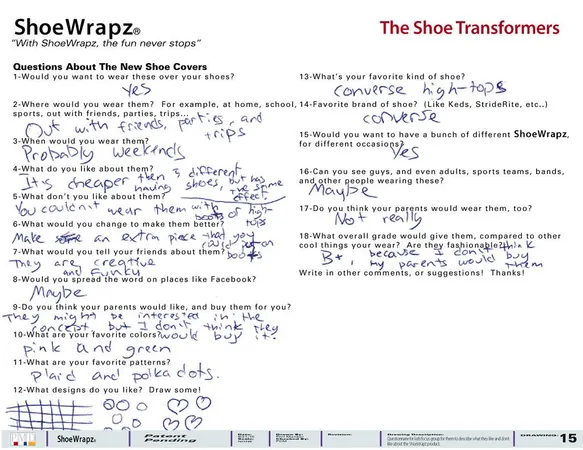 ShoeWrapz®
"With ShoeWrapz, the fun never stops"
The Shoe Transformers
Questions About The New Shoe Covers
1-Would you want to wear these over your shoes?
Yes
2-Where would you wear them? For example, at home, school,
sports, out with friends, parties, trips...
Out with friends, parties, and
trips
3-When would you wear them?
Probably weekends
4-What do you like about them?
It's cheaper then 3 different
having shoes, but has
the same
effect.
5-What don't you like about them?
You couldn't wear them with
boots or high-
tops
6-What would you change to make them better?
Make an extra piece that you
could put on
boots
7-What would you tell your friends about them?
They are creative
and funky
8-Would you spread the word on places like Facebook?
Maybe
9-Do you think your parents would like, and buy them for you?
They might be interested in the
concept, but I don't think they
would buy it.
10-What are your favorite colors?
pink and green
11-What are your favorite patterns?
plaid and polka dots.
12-What designs do you like? Draw some!
13-What's your favorite kind of shoe?
converse high-tops
14-Favorite brand of shoe? (Like Keds, StrideRite, etc..)
converse
15-Would you want to have a bunch of different ShoeWrapz,
for different occasions?
Yes
16-Can you see guys, and even adults, sports teams, bands,
and other people wearing these?
Maybe
17-Do you think your parents would wear them, too?
Not really
18-What overall grade would give them, compared to other
cool things your wear? Are they fashionable?
B+, because I don't think
my parents would buy
them
Write in other comments, or suggestions! Thanks!
ShoeWrapz
Patent
Pending
Drawing Description:
DRAWING: 15